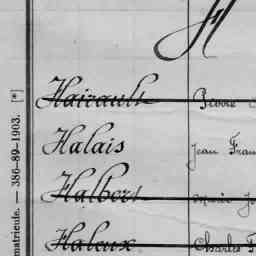 H
Hairault Pierre
Halais Jean Fran
Halbert Marie J
Haleux Charles F
matricule. — 386-89-1903. [*]